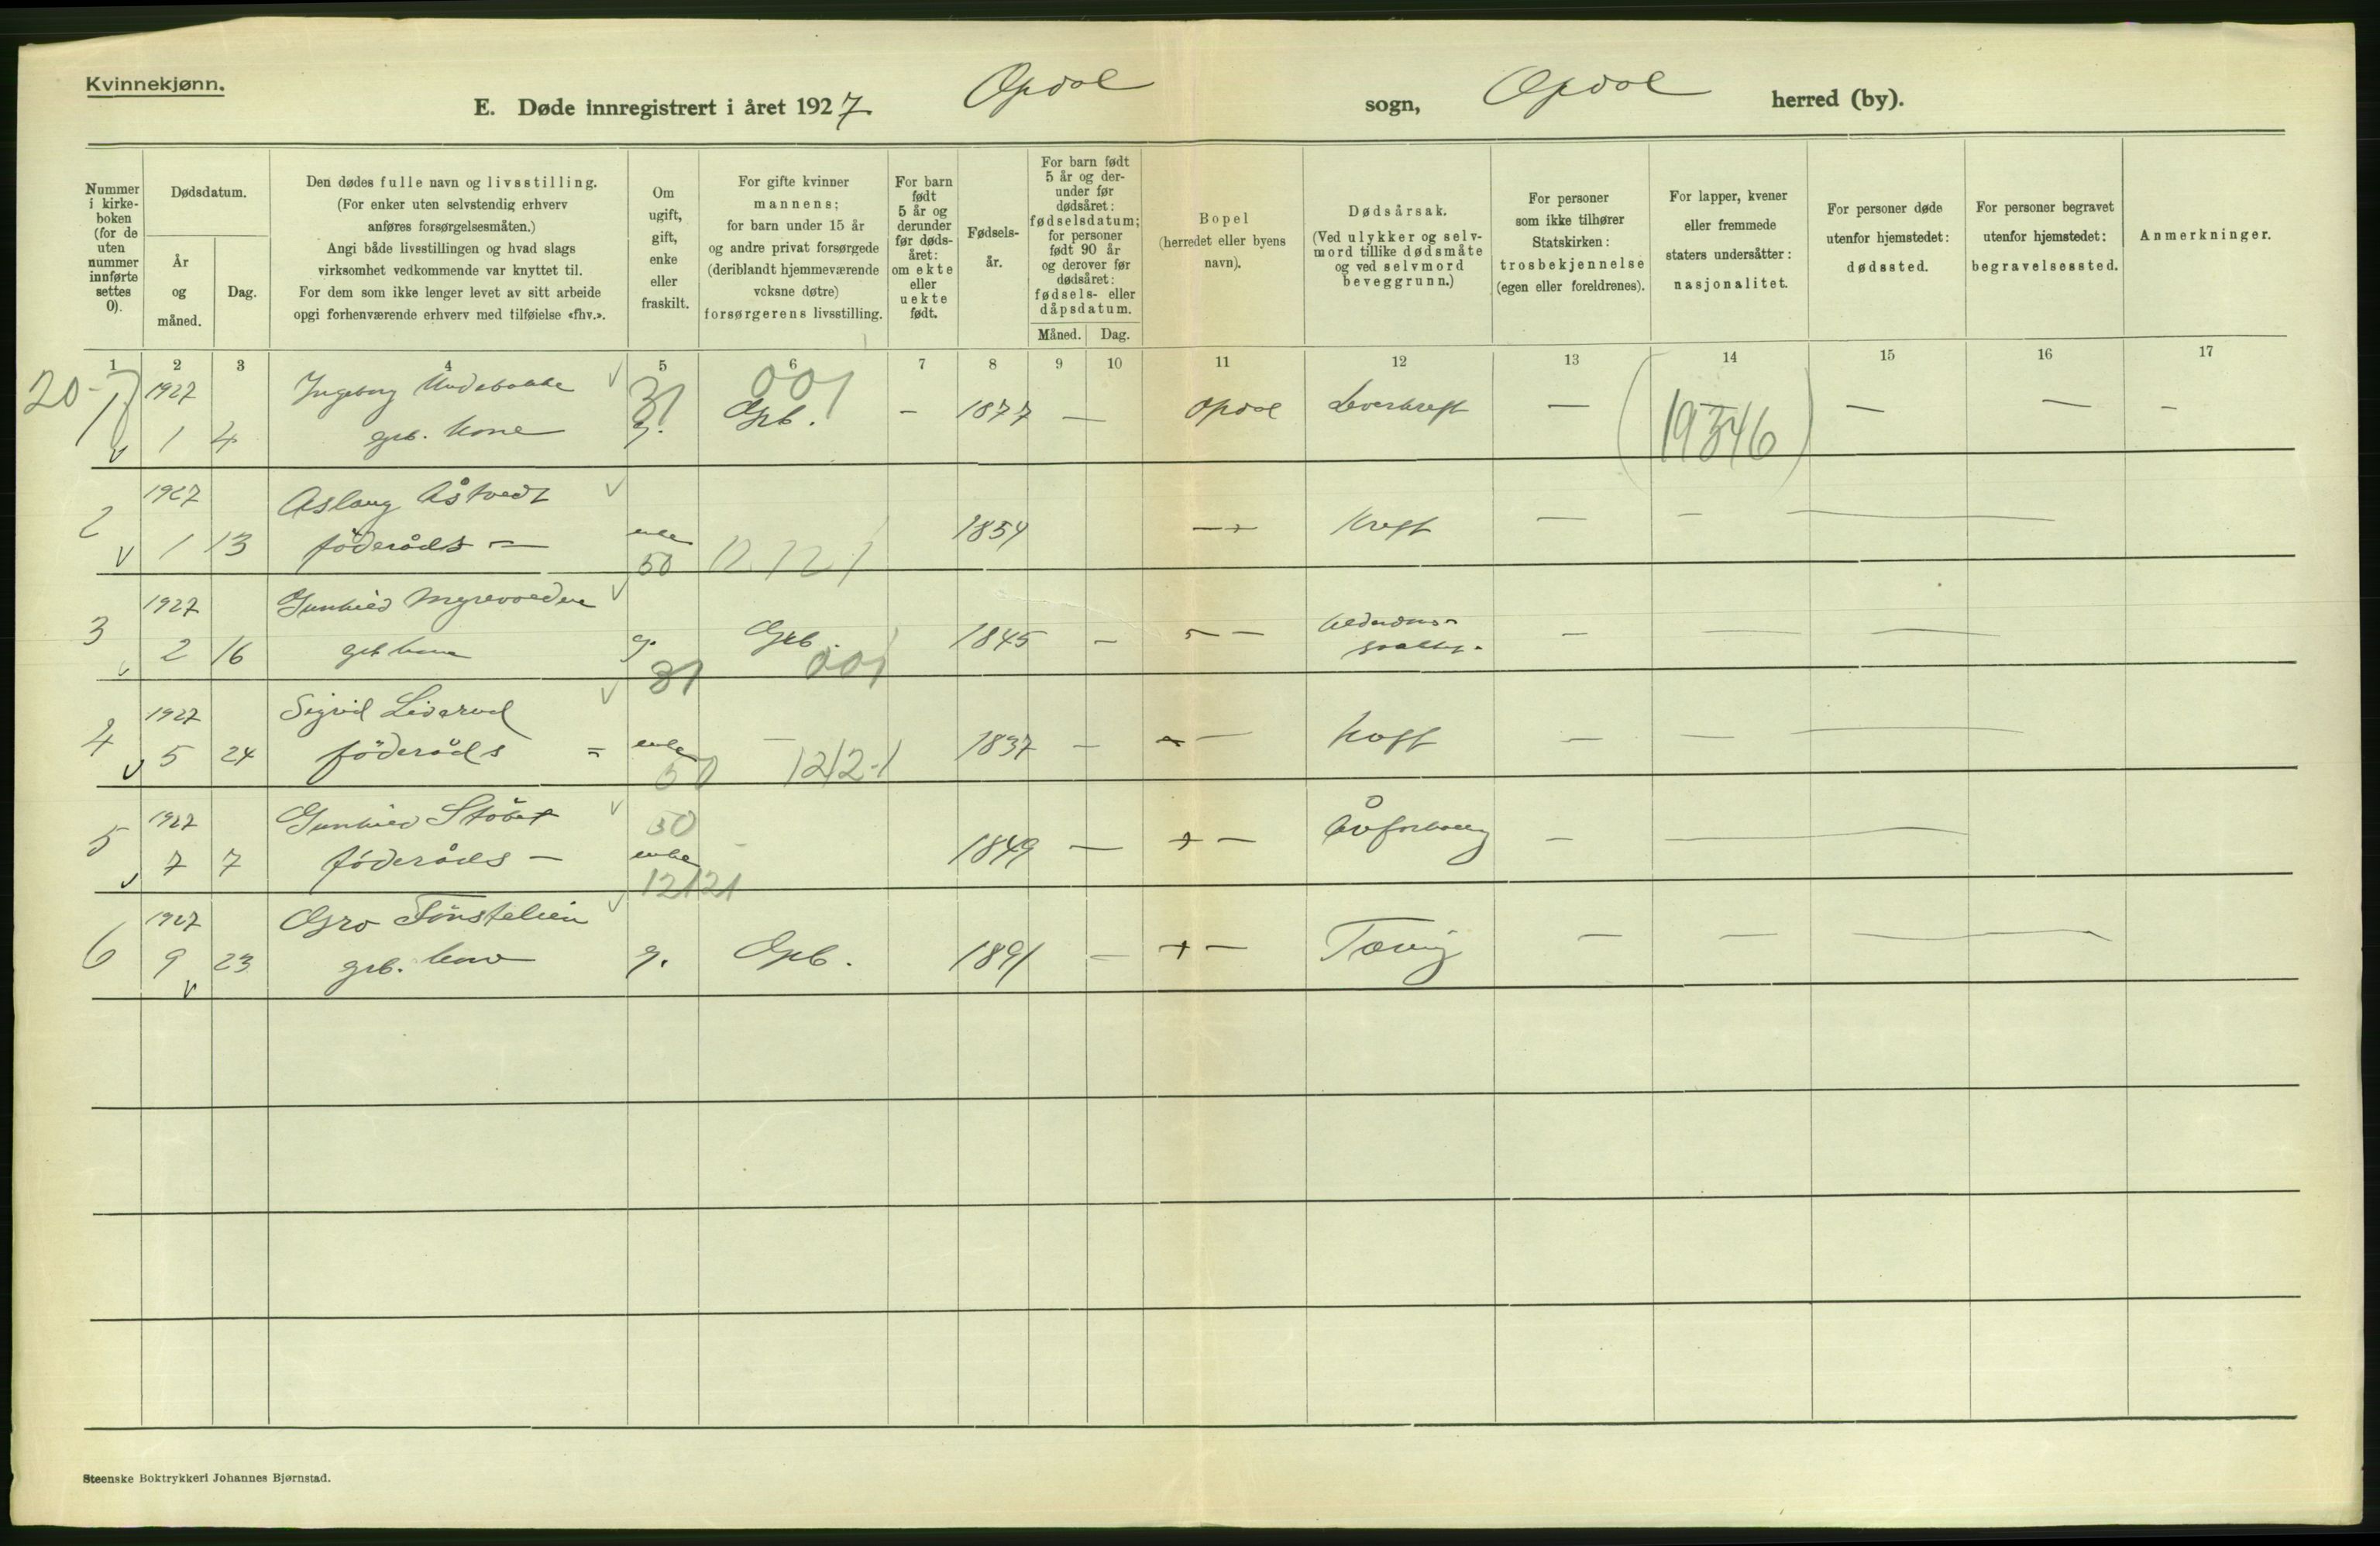 Kvinnekjønn.
E. Døde innregistrert i året 1927 Opdal sogn, Opdal herred (by).
Nummer i kirke-boken (for de uten nummer innførte settes 0).
Dødsdatum.
År og måned.
Dag.
Den dødes fulle navn og livsstilling.
(For enker uten selvstendig erhverv
anføres forsørgelsesmåten.)
Angi både livsstillingen og hvad slags
virksomhet vedkommende var knyttet til.
For dem som ikke lenger levet av sitt arbeide
opgi forhenværende erhverv med tilføielse «fhv.».
Om
ugift,
gift,
enke
eller
fraskilt.
For gifte kvinner
mannens;
for barn under 15 år
og andre privat forsørgede
(deriblandt hjemmeværende
voksne døtre)
forsørgerens livsstilling.
For barn
født
5 år og
derunder
før døds-
året:
om ekte
eller
uekte
født.
Fødsels-
år.
For barn født
5 år og der-
under før
dødsåret:
fødselsdatum;
for personer
født 90 år
og derover før
dødsåret:
fødsels- eller
dåpsdatum.
Måned. Dag.
Bopel
(herredet eller byens
navn).
Dødsårsak.
(Ved ulykker og selv-
mord tillike dødsmåte
og ved selvmord
beveggrunn.)
For personer
som ikke tilhører
Statskirken:
trosbekjennelse
(egen eller foreldrenes).
For lapper, kvener
eller fremmede
staters undersåtter:
nasjonalitet.
For personer døde
utenfor hjemstedet:
dødssted.
For personer begravet
utenfor hjemstedet:
begravelsessted.
Anmerkninger.
1 2 3 4 5 6 7 8 9 10 11 12 13 14 15 16 17
20- 1927 Ingeborg 31 001
1 1 4 grb. kone g. Grb. – 1877 — Opdal Leverkreft — (19346) — — –
1927 Aslaug Åstvedt
2 1 13 föderåds — enke 1854 Kreft — –
50 12.121
1927 Gunhild
3 2 16 grb kone g. Grb. 1845 – – — Alderdoms- – — —
31 001
1927 Sigrid
4 5 24 föderåds = enke – 1837 – — Kreft — — —
50 1212-1
1927 Gunhild 50
5 7 7 föderåds – enke 1849 — –
12121
1927 Gro
6 9 23 grb. kone g. Grb. 1891 — — Tæring — — —
Steenske Boktrykkeri Johannes Bjørnstad.